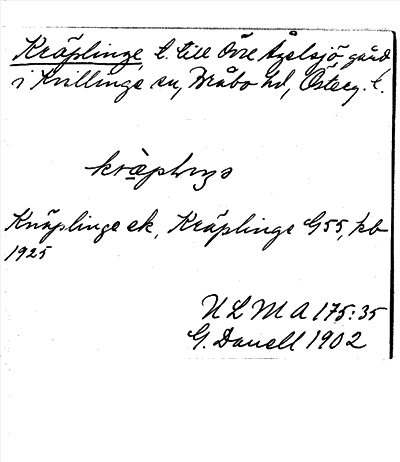 Kräplinge, t. till Övre Axelsjö, gård
i Kvillinge sn, Bråbo hd, Österg. l.
kræ̀plıŋə
Knäplinge ek, Kräplinge G55, kb
1925
ULMA 175:35
G. Danell 1902